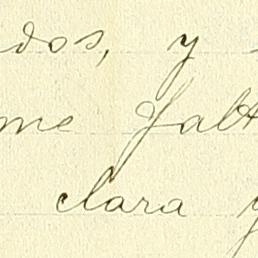 dos, y
me falt
clara y